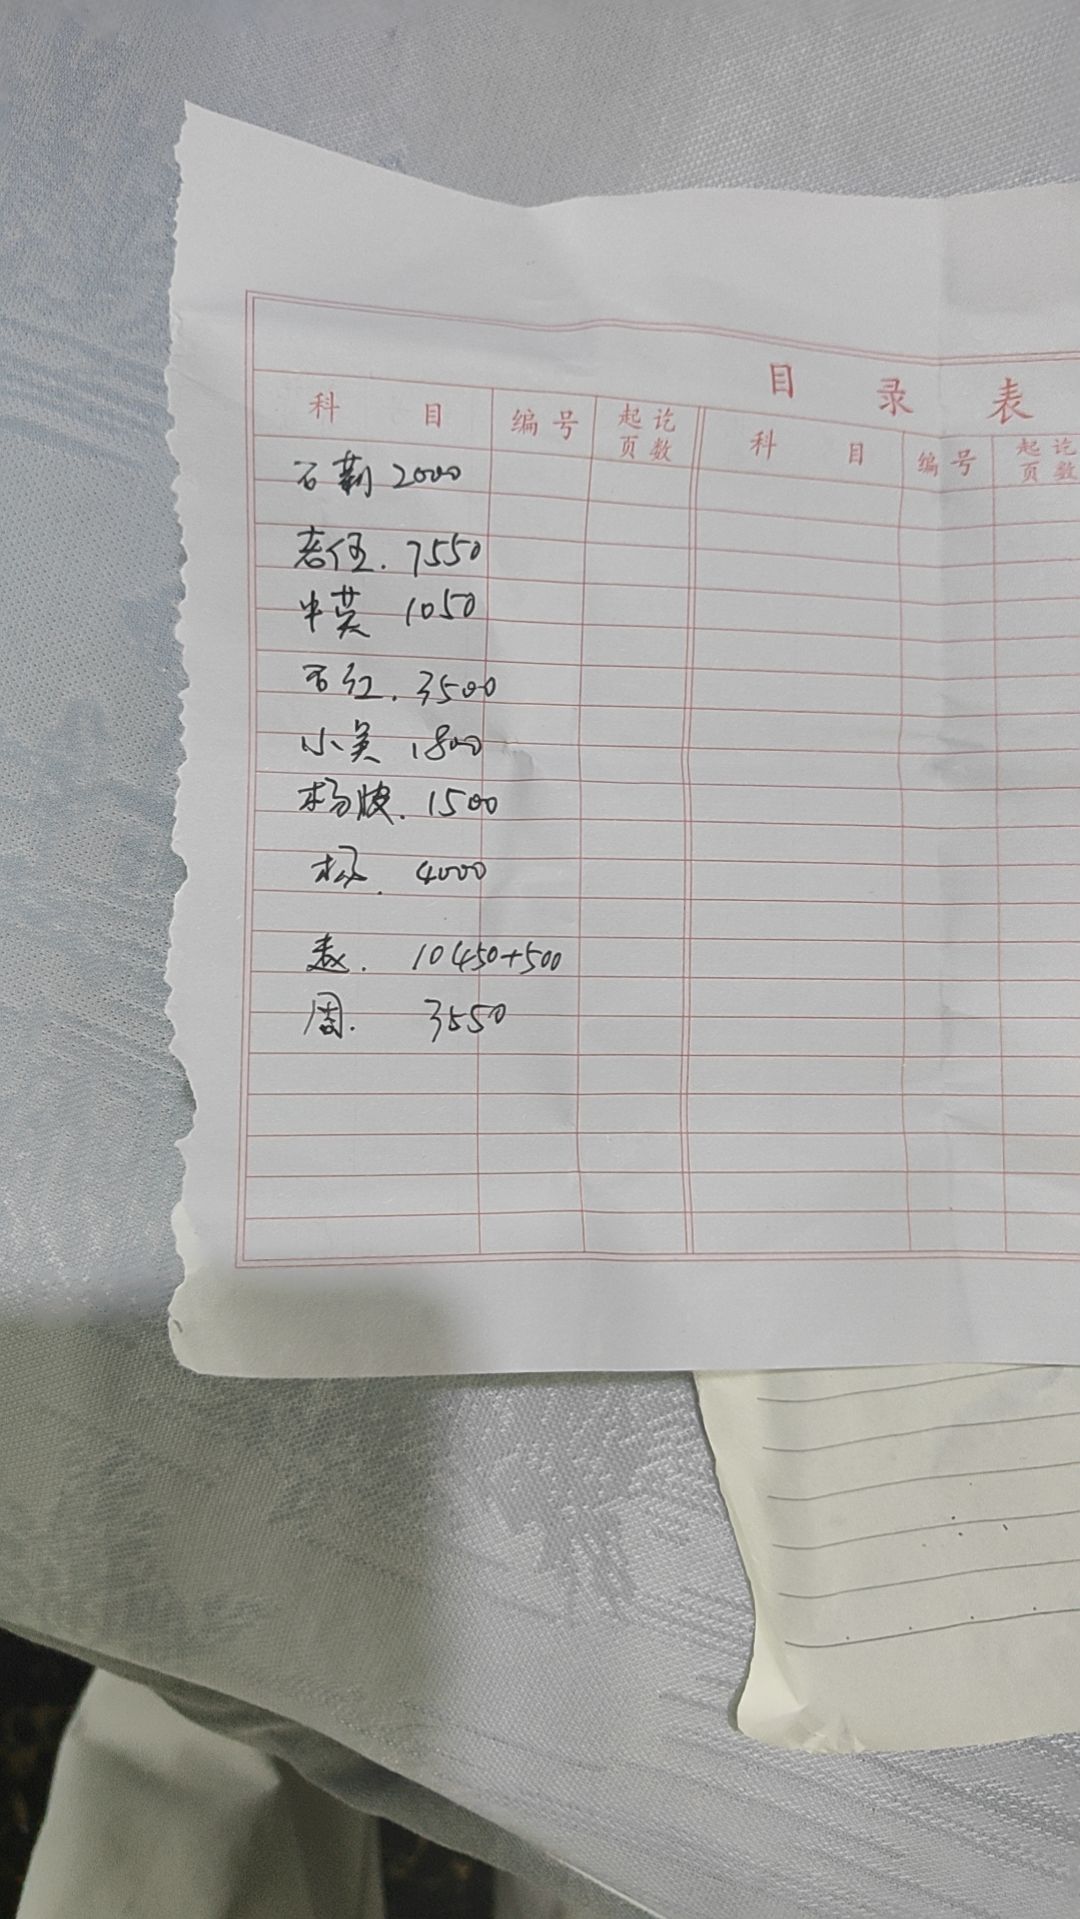 目 录 表
科 目 编号 起讫页数 科 目 编号 起讫页数
石 2000
老任. 7550
中英 1050
石红. 3500
小吴 1800
杨 . 1500
杨. 4000
. 10450+500
周. 3550